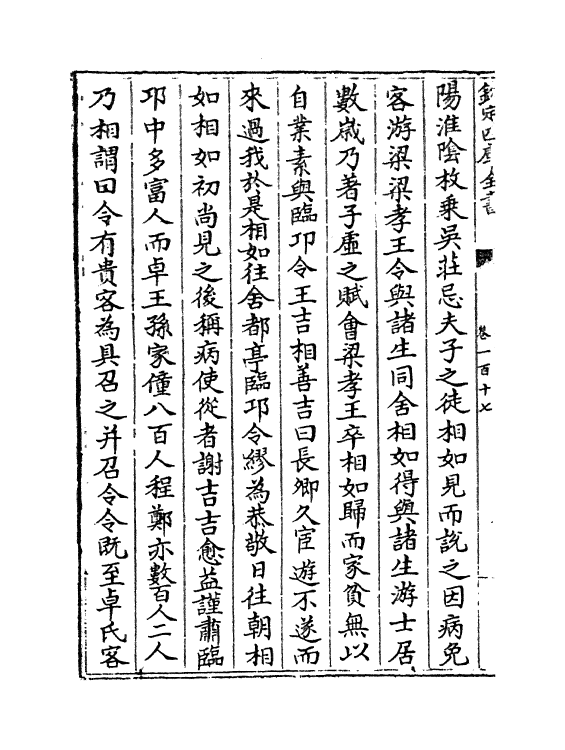 欽定四庫全書
卷一百十七
陽淮陰枚乗吳莊忌夫子之徒相如見而説之因病免
客游梁梁孝王令與諸生同舍相如得與諸生游士居
數嵗乃著子虛之賦會梁孝王卒相如歸而家貧無以
自業素與臨卭令王吉相善吉曰長卿久宦遊不遂而
來過我於是相如往舍都亭臨卭令繆為恭敬日往朝相
如相如初尚見之後稱病使從者謝吉吉愈益謹肅臨
卭中多富人而卓王孫家僮八百人程鄭亦數百人二人
乃相謂曰令有貴客為具召之并召令令既至卓氏客